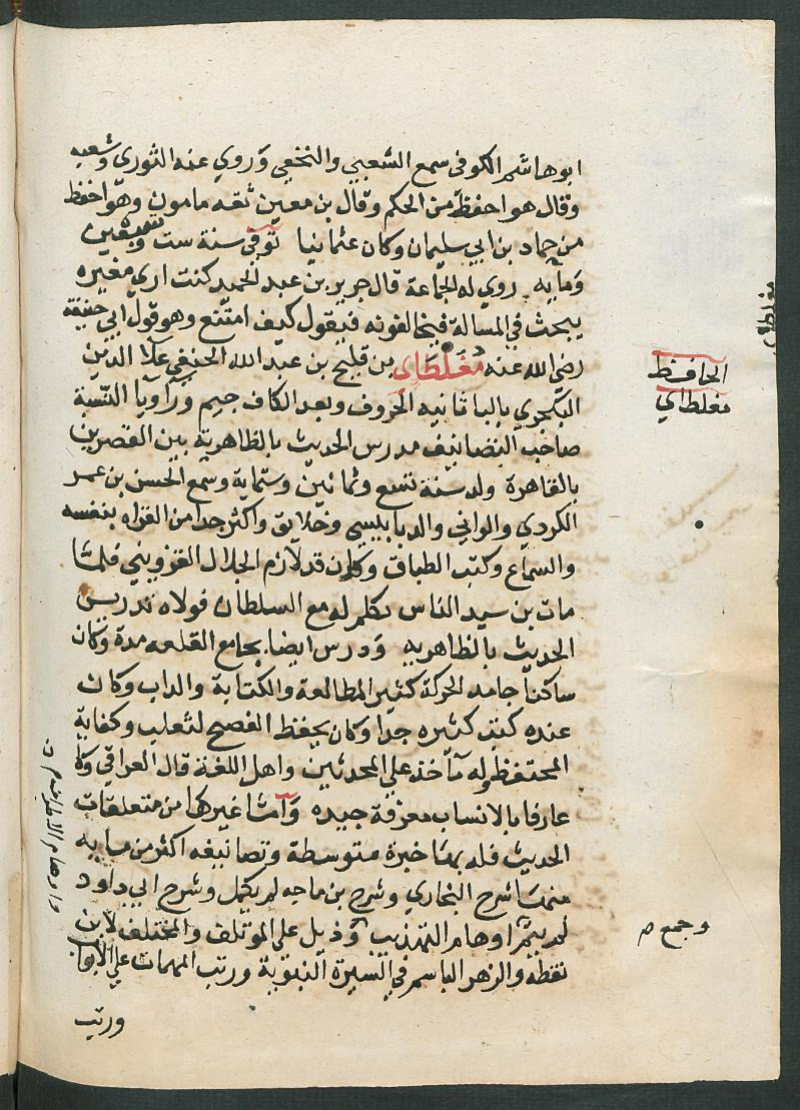 ابو هاشم الكوفى سمع الشعبي والنخعي وروي عنه الثوري وشعبه
وقال هو احفظ من الحكم وقال بن معين ثقه مامون وهو احفظ
من حماد بن ابي سليمان وكان عثمانيا توفى سنة ست
ومايه روي له الجماعة قال جرير بن عبد الحميد كنت اري مغيره
يبحث في المسالة فيخالفونه فيقول كيف امتنع وهو قول ابي حنيفة
رضي الله عنه مغلطاي بن قليج بن عبد الله الحنفي علا الدين
البكجري بالبا ثانيه الحروف وبعد الكاف جيم ورا ويا النسبة
صاحب التصانيف مدرس الحديث بالظاهرية بين القصرين
بالقاهرة ولد سنة تسع وثمانين وستماية وسمع الحسن بن عمر
الكردي والواني والدبابيسي وخلايق واكثر جدا من القراه بنفسه
والسماع وكتب الطباق وكان قد لازم الجلال القزويني فلما
مات بن سيد الناس تكلم له مع السلطان فولاه تدريس
الحديث بالظاهريه ودرس ايضا بجامع القلعه مدة وكان
ساكنا جامد الحركة كثير المطالعة والكتابة والداب وكان
عنده كتب كثيره جدا وكان يحفظ الفصيح لثعلب وكفاية
المتحفظ وله مآخذ علي المحدثين واهل اللغة قال العراقي وكا
عارفا بالانساب معرفة جيده وامّا غيرها من متعلقات
الحديث فله بها خبرة متوسطة وتصانيفه اكثر من مايه
منها شرح البخاري وشرح بن ماجه لم يكمل وشرح ابي داود
لم يتم اوهام التهذيب وذيل علي الموتلف والمختلف لابن
نقطه والزهر الباسم في السيرة النبوية ورتب المهمات علي الابواب
ورتب
الحافظ
مغلطاي
وجمع م
مغلطاي